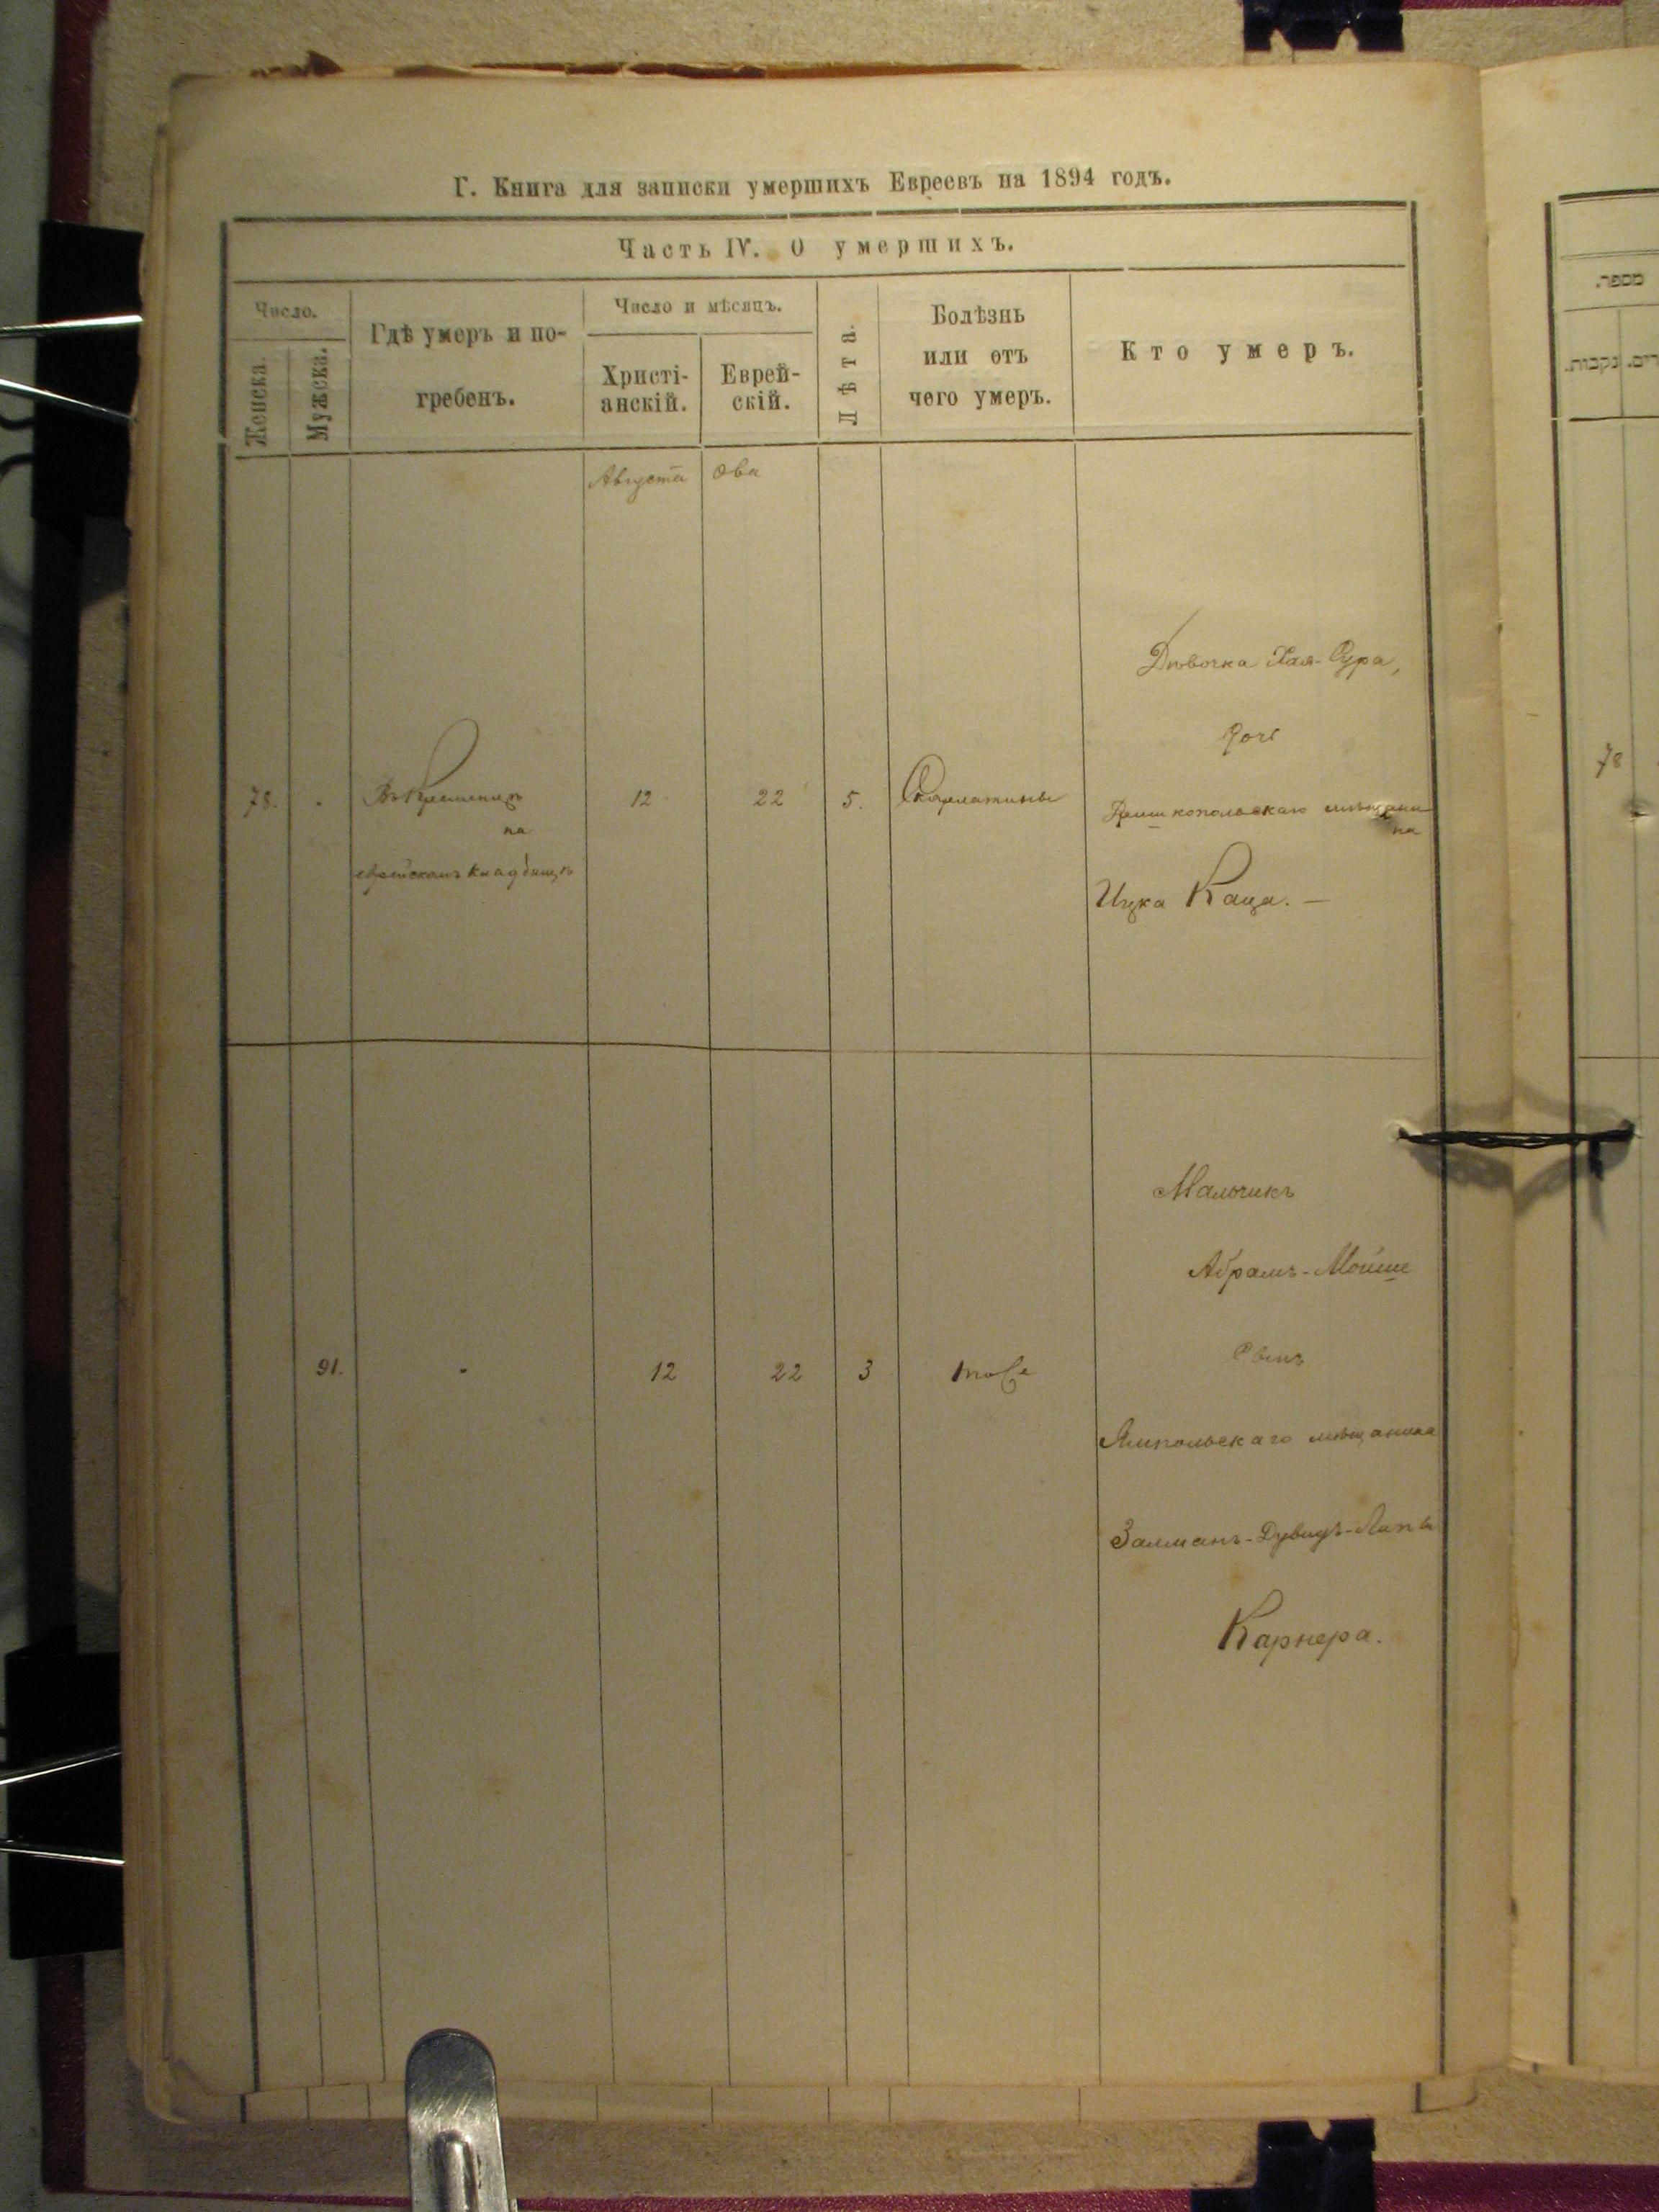 Г. Книга для записки умершихъ Евреевъ на 1894 годъ.
Часть IV. О умершихъ.
Число.
Женска.
Мужска.
Гдѣ умеръ и по-
гребенъ.
Число и мѣсяцъ.
Христі-
анскій.
Еврей-
скій.
Лѣта.
Болѣзнь
или отъ
чего умеръ.
Кто умеръ.
Августа
Ова
Дѣвочка Хая-Сура,
дочь
78.
Въ Кременцѣ
12
22
5.
Скарлатины
мѣщани
на
на
еврейскомъ кладбищѣ
Ицка Каца. —
Мальчикъ
Абрамъ-Мойше
сынъ
91.
-
12
22
3
тоже
Ямпольскаго мѣщанина
Залманъ-Дувидъ-Липы
Карнера.
מספר.
נקבות.
78